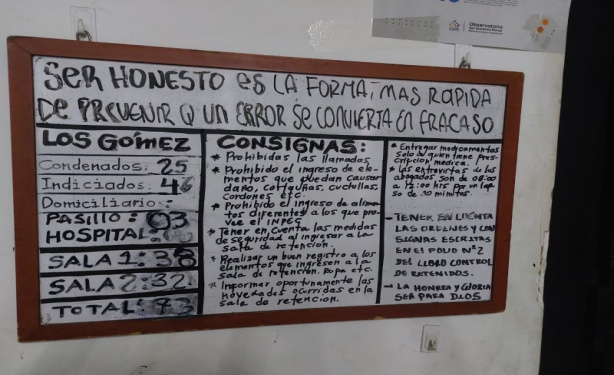 Observatorio
SER HONESTO es LA FORMA, MAS RAPIDA
DE PREVENIR Q UN ERROR Se CONVIERTA en FRACASO
LOS GómEZ
Condenados: 25
Indiciados: 46
Domiciliario:
PASILLO: 03
HOSPITAL:
SALA 1: 38
SALA 2: 32
TOTAL: 73
CONSIGNAS:
* Prohibidas las llamadas
* Prohibido el ingreso de ele-
mentos que puedan causar
daño, Cortauñas, cuchillas,
Cordones etc.
* Prohibido el ingreso de alimen-
tos diferentes a los que pro-
vee el INPEC
* Tener en cuenta las medidas
de seguridad al ingresar a la
sala de retencion.
* Realizar un buen registro a los
elementos que ingresen a la
sala de retencion. Ropa etc.
* Informar oportunamente las
novedades ocurridas en la
sala de retencion.
* Entregar medicamentos
Solo a quien tiene pres-
cripcion medica.
* Las entrevistas de los
abogados, son de 08:00
a 12:00 hrs por un lap
so de 30 minutos.
- TENER EN CUENTA
LAS ORDENES Y CON
SIGNAS ESCRITAS
EN EL FOLIO Nº 2
DEL LIBRO CONTROL
DE RETENIDOS.
- LA HONRA Y GLORIA
SER PARA DIOS